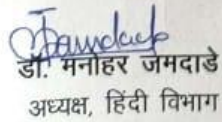 डॉ. मनोहर जमदाडे
अध्यक्ष, हिंदी विभाग